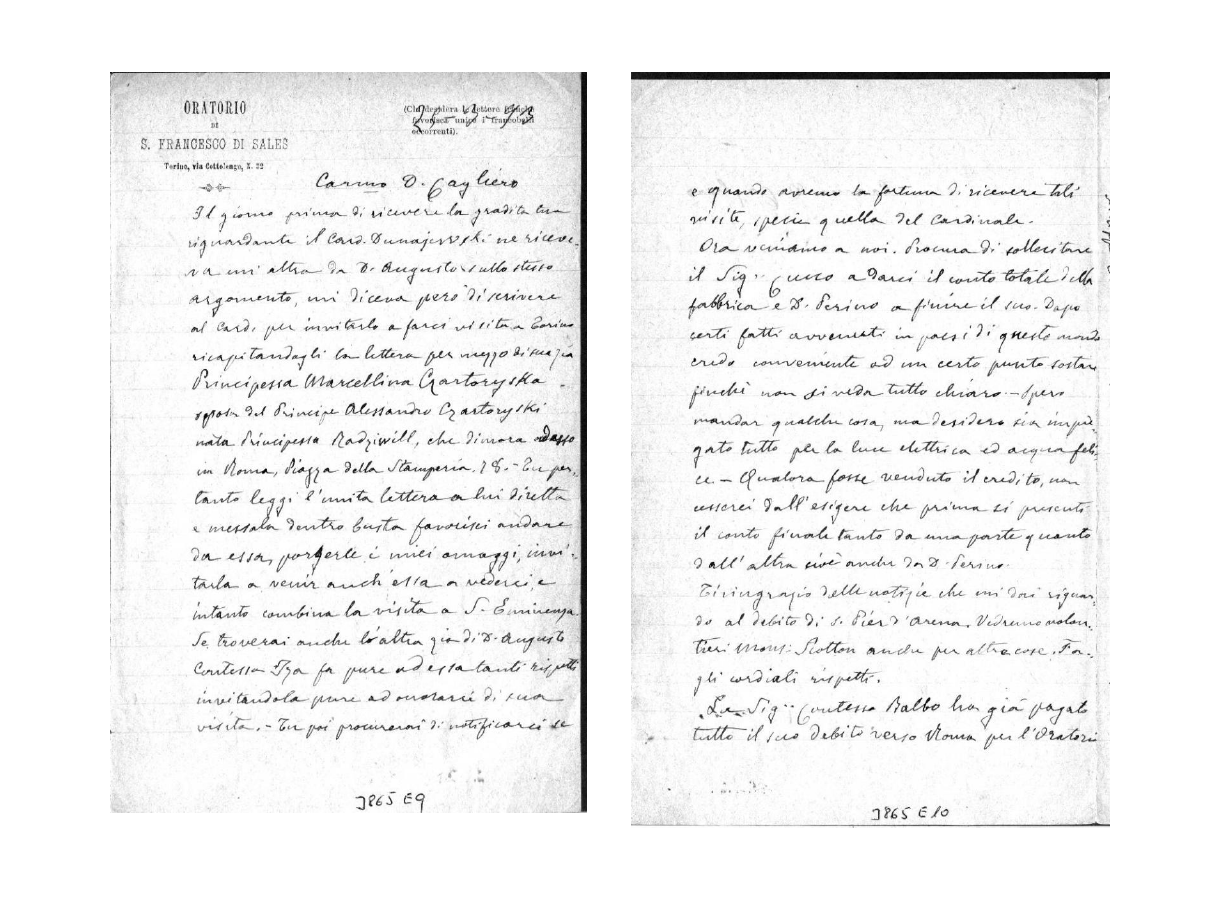 ORATORIO
DI
S. FRANCESCO DI SALES
Torino, via Cottolengo, N. 32
(Chi desidera le lettere franche
favorisca unire i francobolli
occorrenti).
Carmo D. Cagliero
Il giorno prima di ricevere la gradita tua
riguardante il Card. Dunajewski ne riceve-
va un'altra da D. Augusto sullo stesso
argomento, mi diceva però di scrivere
al Card. per invitarlo a farci visita a Torino
ricapitandogli la lettera per mezzo di sua zia
Principessa Marcellina Czartoryska
sposa del Principe Alessandro Czartoryski
nata Principessa Radziwill, che dimora adesso
in Roma, Piazza della Stamperia, 78. - Tu per-
tanto leggi l'unita lettera a lui diretta
e messala dentro busta favorisci andare
da essa, porgerle i miei omaggi, invi-
tarla a venir anch'essa a vederci, e
intanto combina la visita a S. Eminenza.
Se troverai anche l'altra zia di D. Augusto
Contessa Iza fa pure ad essa tanti rispetti
invitandola pure ad onorarci di sua
visita. - Tu poi procurerai di notificarci se
J865 E9
e quando avremo la fortuna di ricevere tali
visite, specie quella del Cardinale.
Ora veniamo a noi. Procura di sollecitare
il Sig. Cucco a darci il conto totale della
fabbrica e D. Perino a finire il suo. Dopo
certi fatti avvenuti in paesi di questo mondo
credo conveniente ad un certo punto sostare
finchè non si veda tutto chiaro. - Spero
mandar qualche cosa, ma desidero sia impie-
gato tutto per la luce elettrica ed acqua feli-
ce - Qualora fosse venduto il credito, non
usserei dall'esigere che prima si presenti
il conto finale tanto da una parte quanto
dall'altra cioè anche da D. Perino.
Ti ringrazio delle notizie che mi dai riguar-
do al debito di S. Pier d'Arena. Vedremo volen-
tieri Mons. Scotton anche per altre cose. Fa-
gli cordiali rispetti.
La Sig. Contessa Balbo ha già pagato
tutto il suo debito verso Roma per l'Oratorio
J865 E10